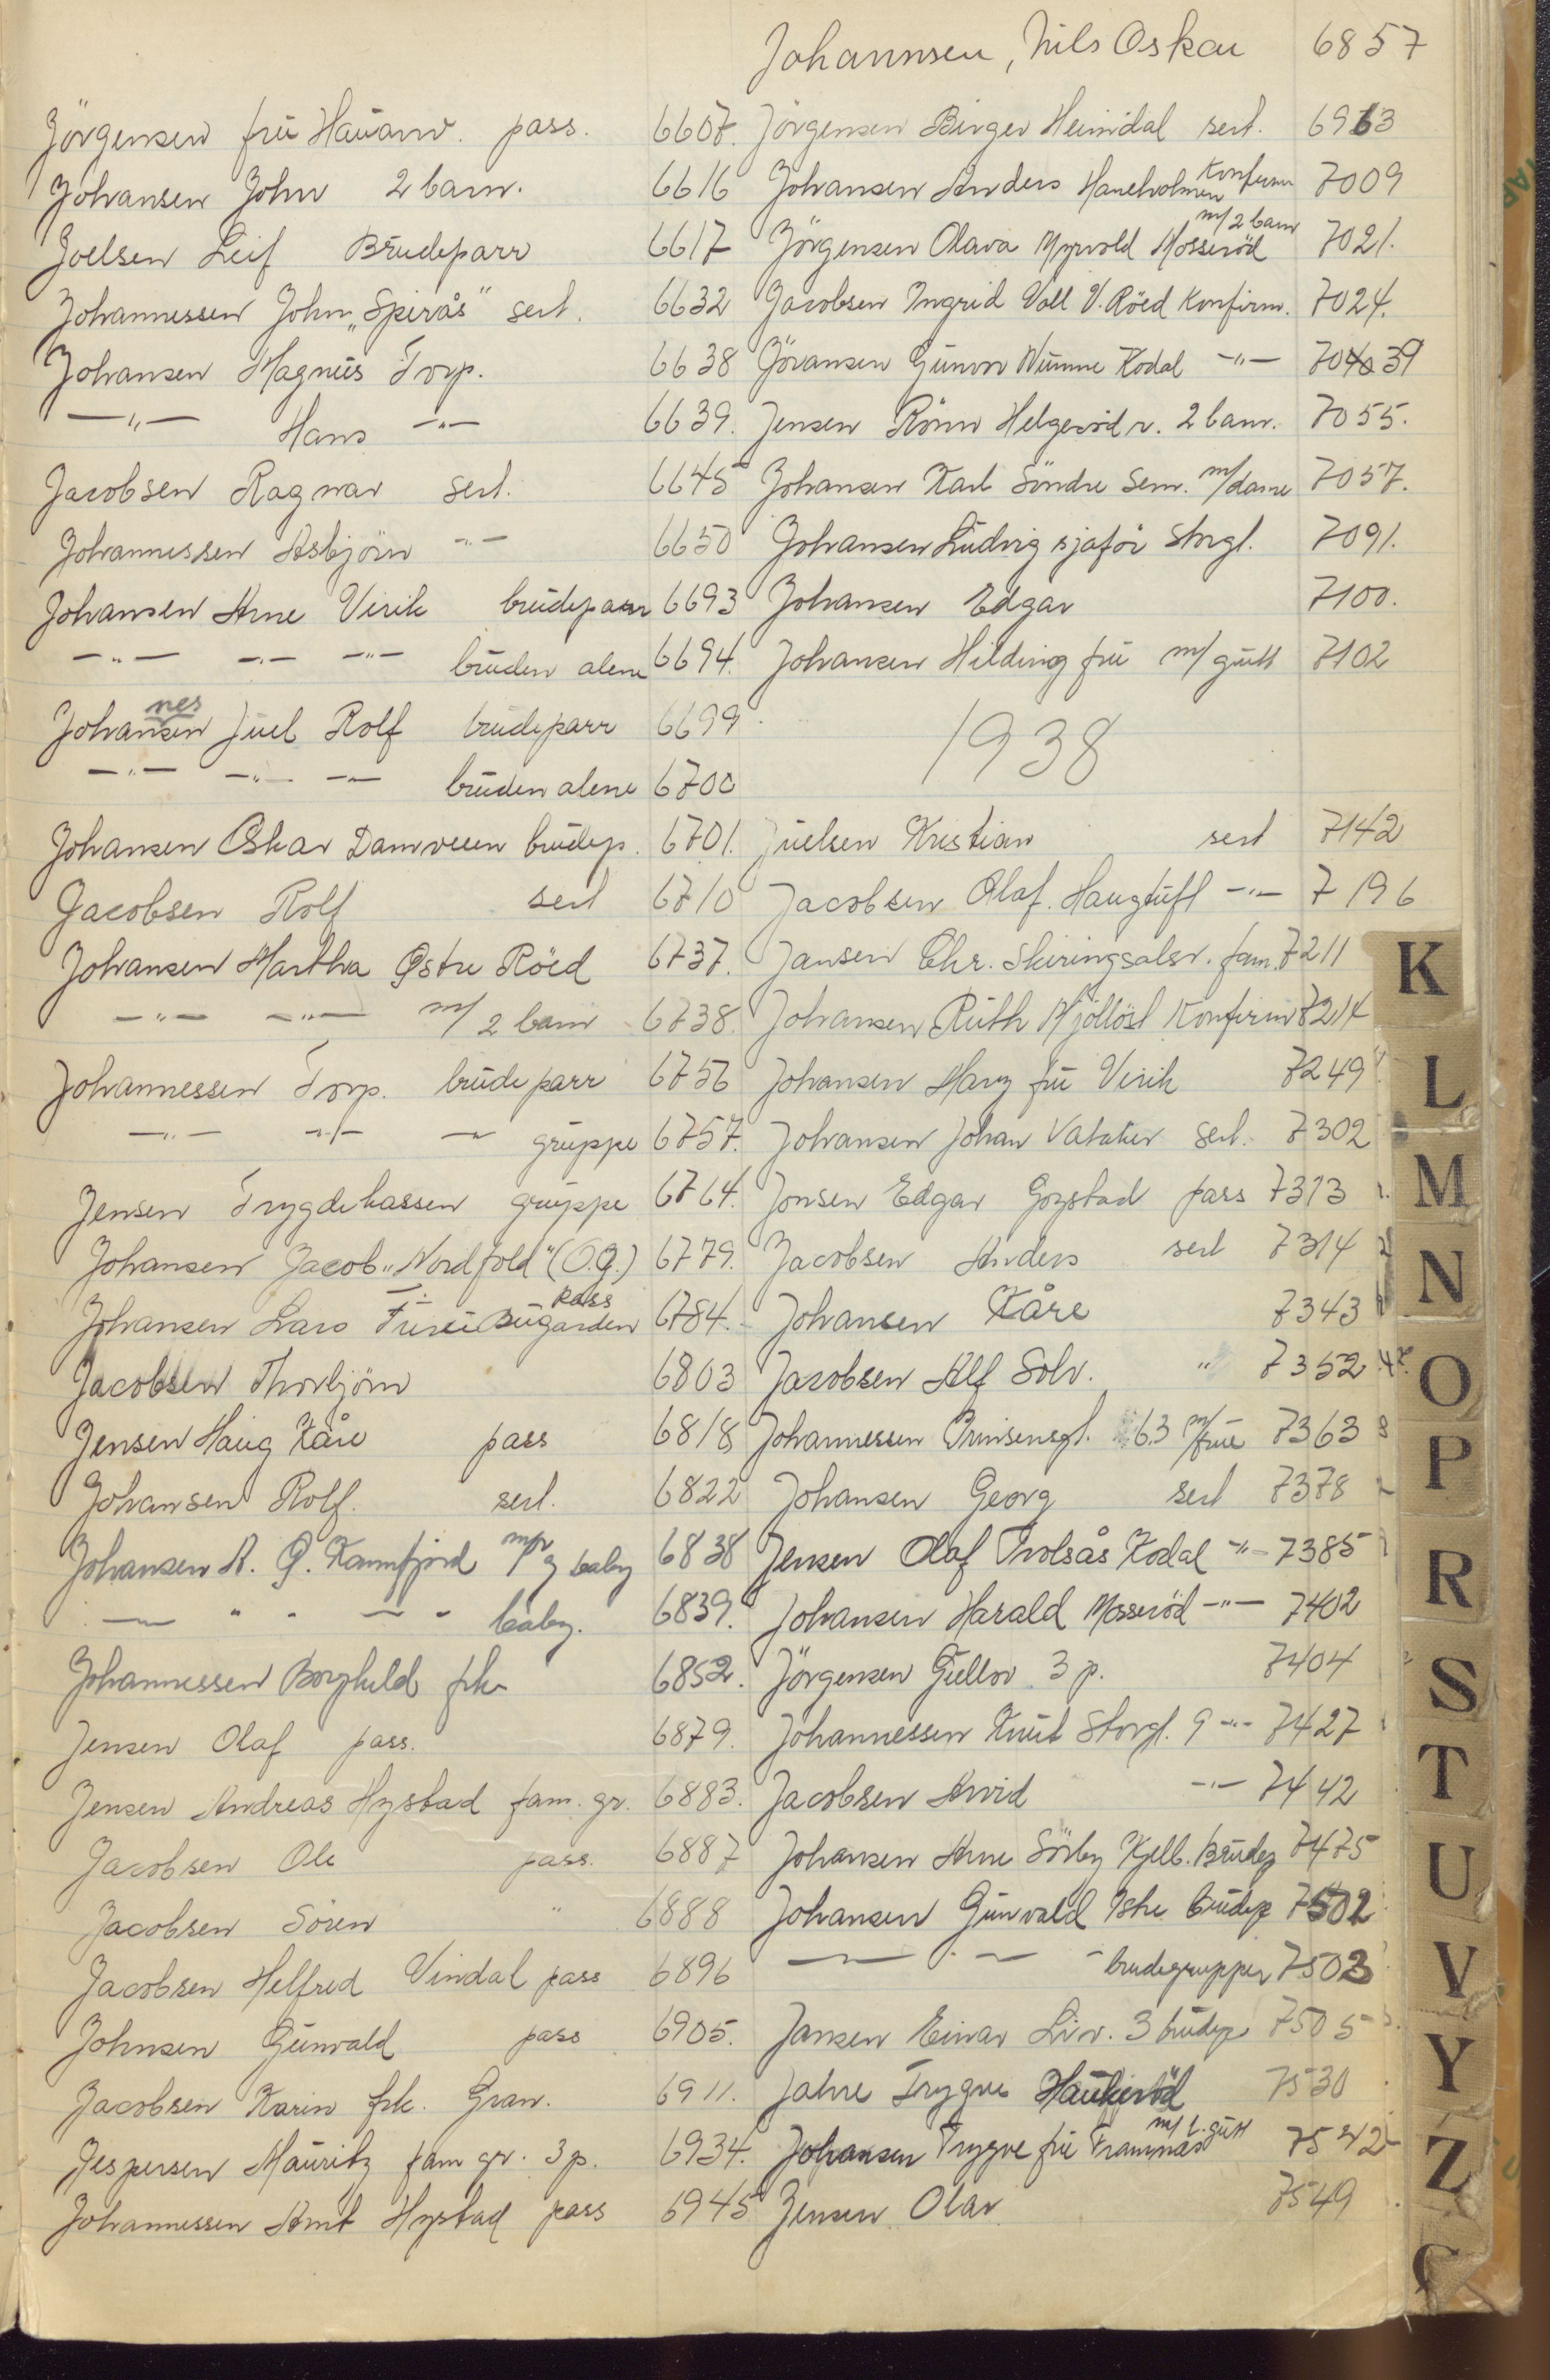 Johannsen, Nils Oskar 6857
Jörgensen frü Haüanv. pass. 6607.
Johansen John 2 barn. 6616
Joelsen Leif Brüdeparr 6617
Johannessen John „Spirås" sert. 6632
Johansen Magnüs Torp. 6638
—"— Hans —"— 6639.
Jacobsen Ragnar sert. 6645
Johannessen Asbjörn —"— 6650
Johansen Arne Virik brüdeparr 6693
—"— —"— —"— brüden alene 6694.
Johansen nes Jüel Rolf brüdeparr 6699
—"— —"— —"— brüden alene 6700
Johansen Oskar Damveien brüdep. 6701.
Jacobsen Rolf sert 6710
Johansen Martha Östre Röed 6737.
—"— —"— m/2 barn 6738.
Johannessen Torp. brüdeparr 6756
—"— —"— —"— grüppe 6757.
Jensen Trygdekassen grüppe 6764.
Johansen Jacob „Nordfold" (O.G.) 6779.
Johansen Lars Bügården pass 6784.
Jacobsen Thorbjörn 6803
Jensen Haüg Kåre pass 6818
Johansen Rolf. sert. 6822
Johansen A. G. Kamfjord baby 6838
— " " — " baby. 6839.
Johannessen Borghild frk 6852.
Jensen Olaf pass. 6879.
Jensen Andreas Hystad fam. gr. 6883.
Jacobsen Ole pass. 6887
Jacobsen Sören " 6888
Jacobsen Helfred Vindal pass 6896
Johnsen Günvald pass 6905.
Jacobsen Karin frk. Gran. 6911.
Jespersen Maüritz fam gr. 3 p. 6934.
Johannessen Arnt Hystad pass 6945
Jörgensen Birger Heimdal sert. 6963
Johansen Anders Haneholmen Konfirm 7009
Jörgensen Olava Myrvold Mosseröd m/2 barn 7021.
Jacobsen Ingrid Voll V. Röed Konfirm. 7024.
Jöransen Günvor Kodal —"— 704039
Jensen Rönn Helgerödv. 2 barn. 7055.
Johansen Karl Söndre Sem. m/dame 7057.
Johansen Lüdvig sjaför Storgt. 7091.
Johansen Edgar 7100.
Johansen Hilding frü m/gütt 7102
1938
Jüelsen Kristian sert 7142
Jacobsen Olaf. Haugtüft —"— 7196
Jansen Chr. Skiringsalsv. fam. 7211
Johansen Rüth Mjöllöst Konfirm 7214
Johansen Mary frü Virik 7249
Johansen Johan Vataker sert. 7302
Jonsen Edgar Gogstad pass 7313
Jacobsen Anders sert 7314
Johansen Kåre 7343
Jacobsen Alf Solv. " 7352
Johannessen Prinsensgt. 63 m/früe 7363
Johansen Georg sert 7378
Jensen Olaf Trolsås Kodal —"— 7385
Johansen Harald Mosseröd —"— 7402
Jörgensen Güllov 3 p. 7404
Johannessen Knüt Storgt. 9 —"— 7427
Jacobsen Arvid —"— 7442
Johansen Arne Sörby Kjell. Brüdep 7475
Johansen Günvald brüdep 7502
— " — brudegrupper 7503
Jansen Einar Liv. 3 brüdep 7505
Jahre Trygve Haükeröd 7530
Johansen Trygve frü Framnäs m/l. gütt 7542
Jensen Olav 7549
K
L
M
N
O
P
R
S
T
U
V
Y
Z